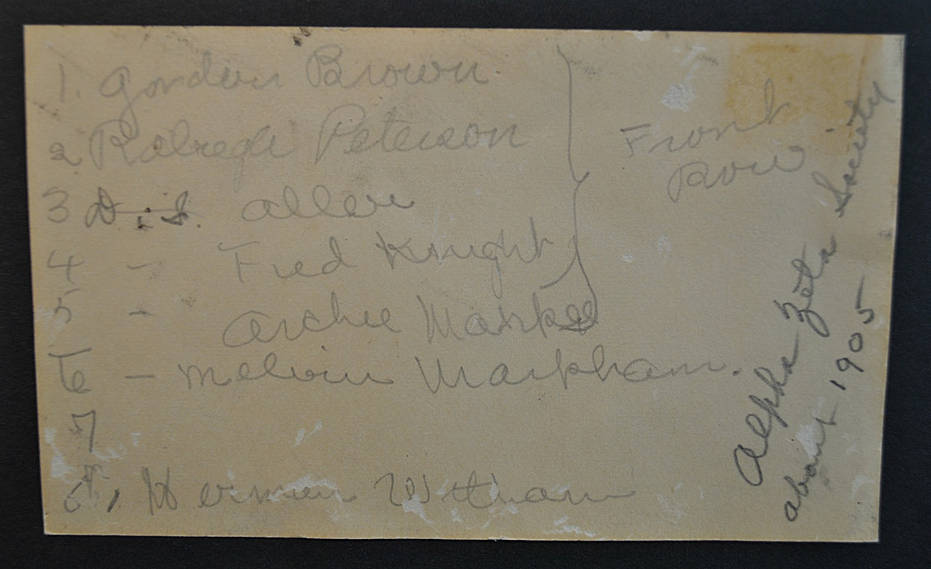 1. Gordon Brown
2 Peterson
3 D. S. Allen
4 - Fred Knight
5 - Archie
6 - Melvin Markham.
7
8, Herman Witham
Front
Row
Alpha Zeta Society
about 1905